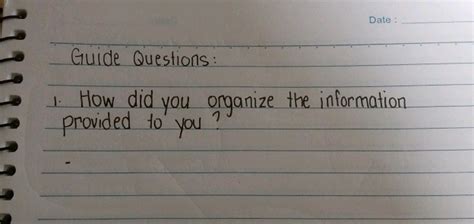 Date :
Guide Questions:
1. How did you organize the information
provided to you ?
-